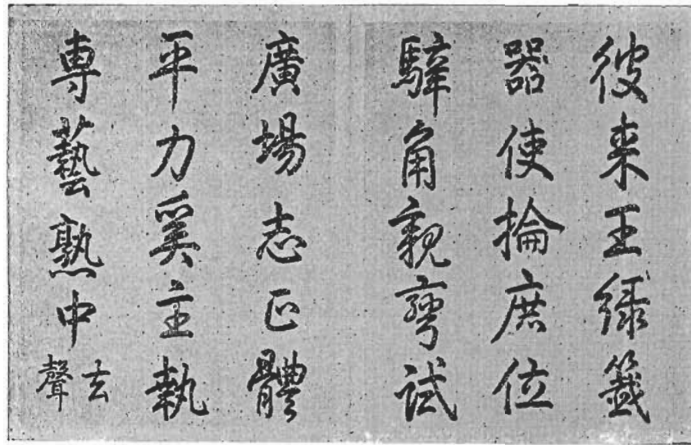 彼来王緑籤
器使掄庶位
騂角親彎試
廣場志正體
平力奚主執
専藝熟中去聲